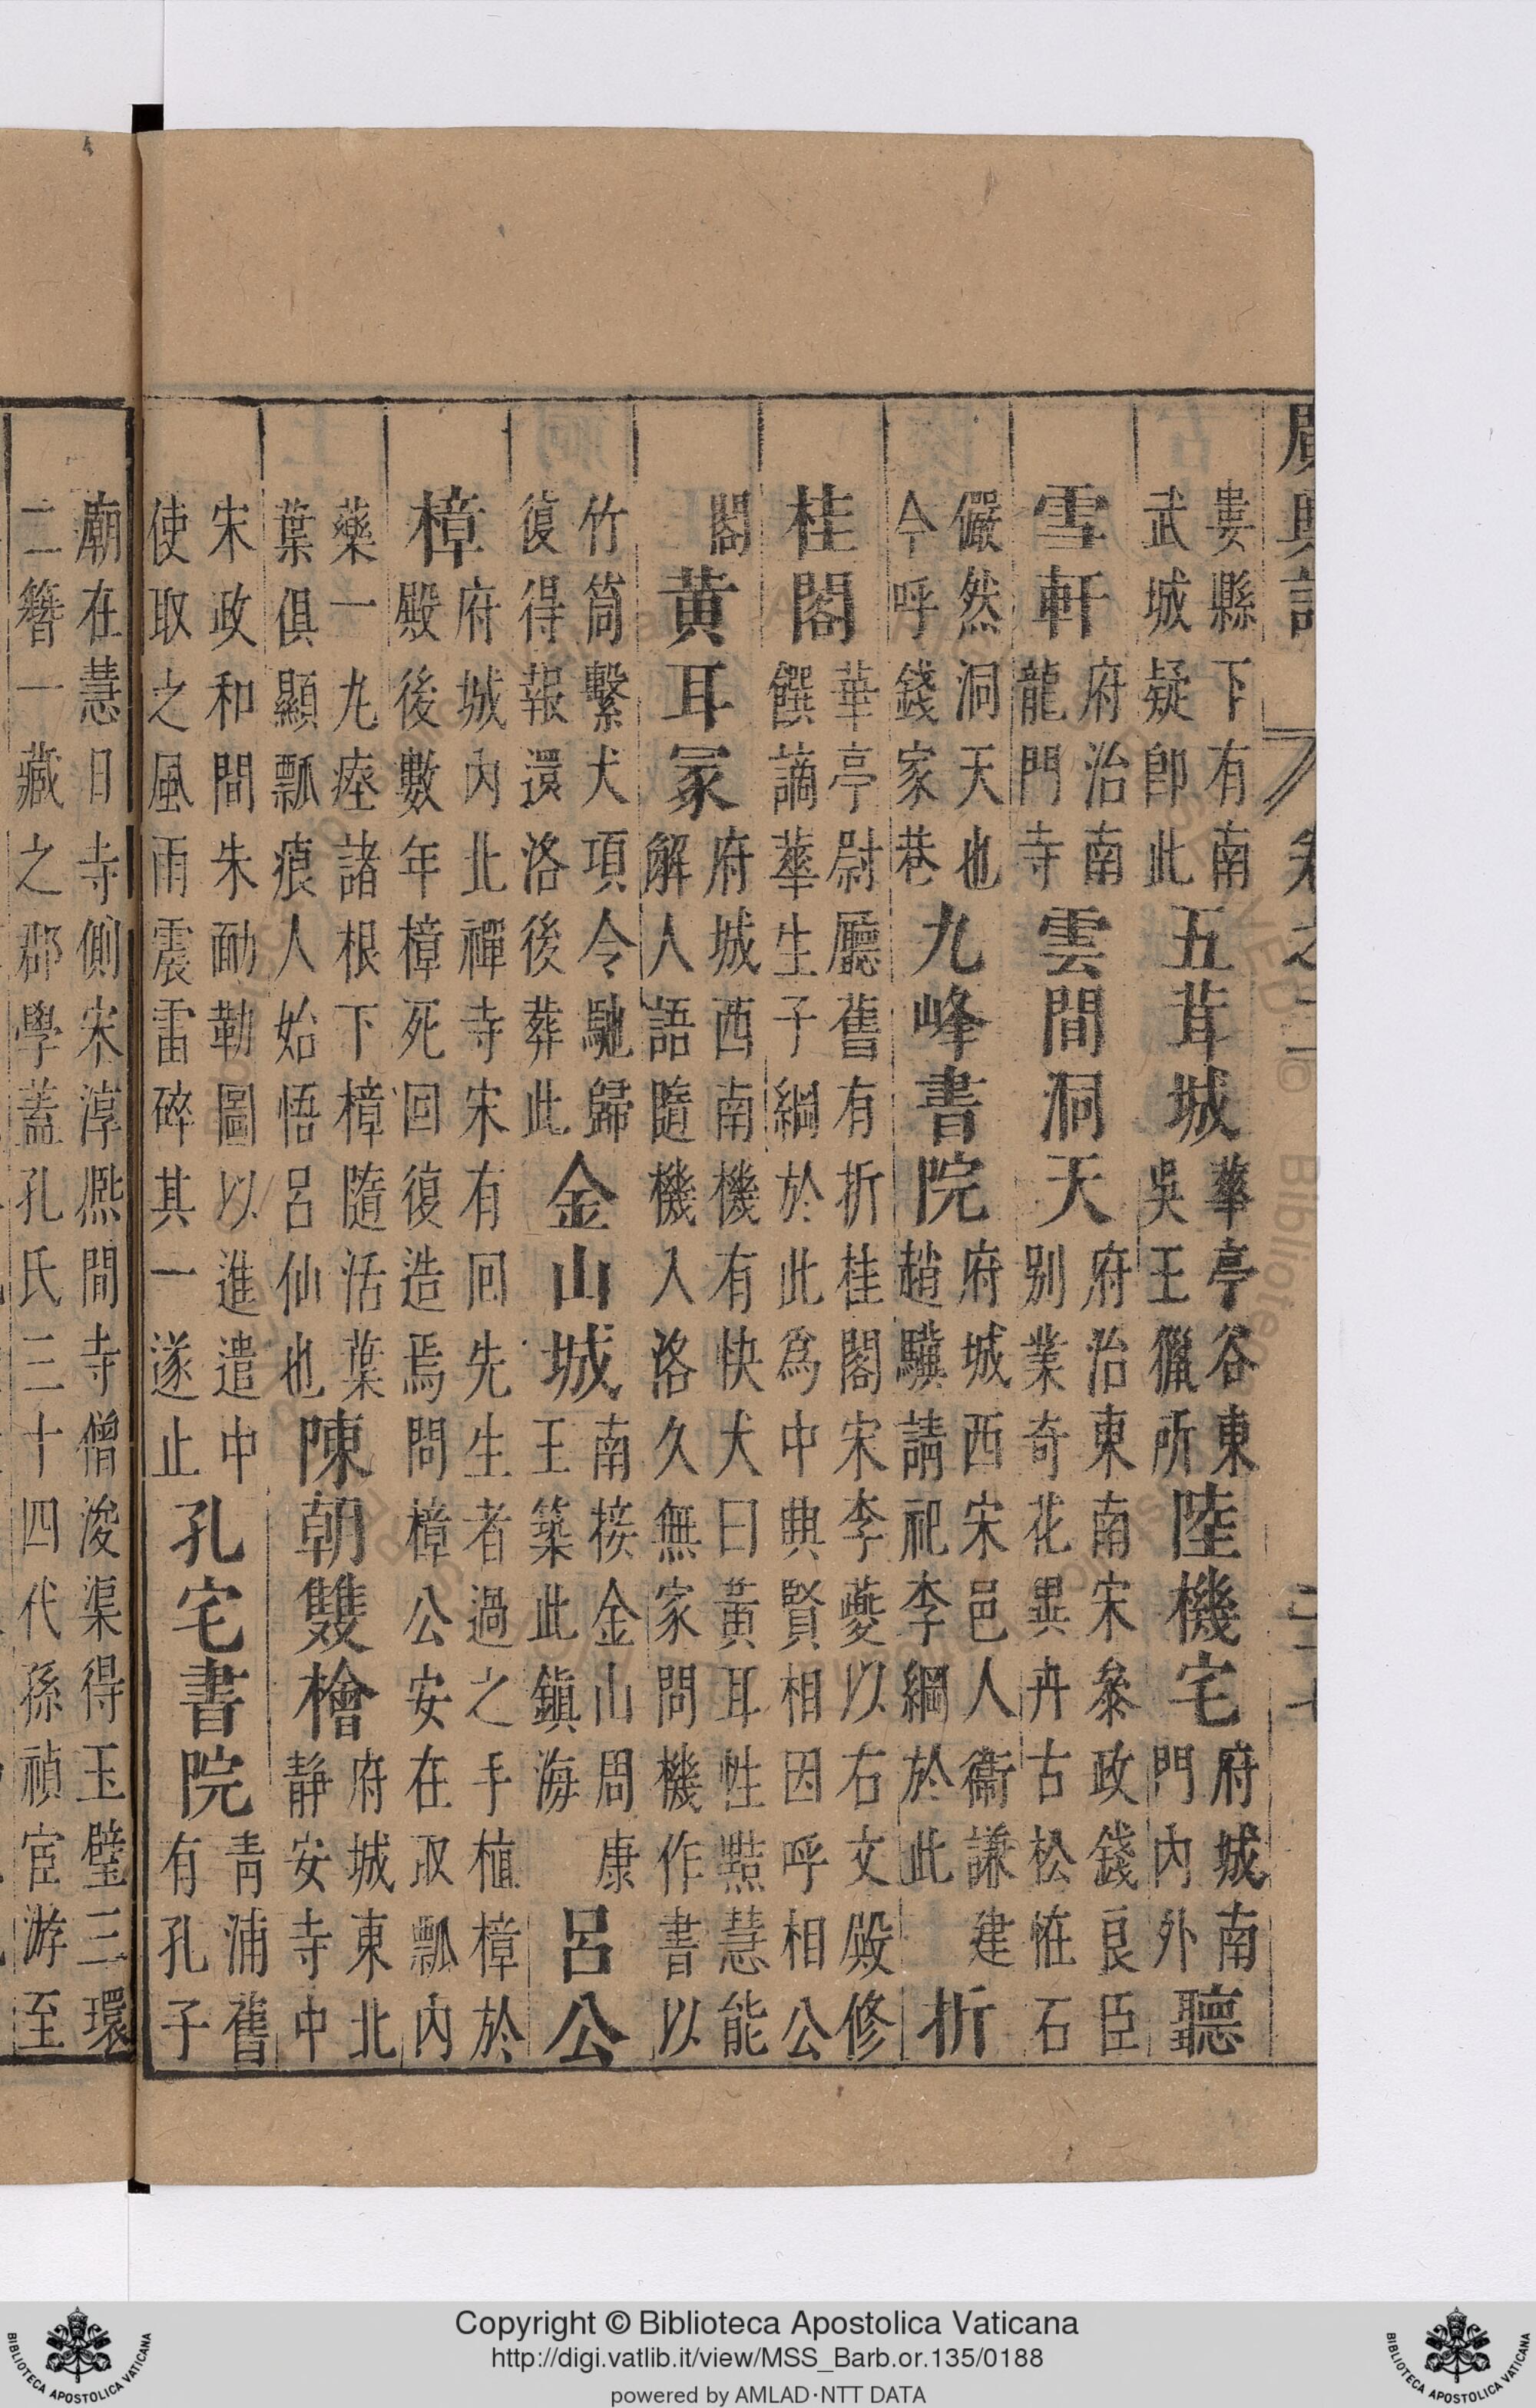 廣輿記 卷之二
婁縣下有南武城疑卽此五茸城華亭谷東吳王獵所陸機宅府城南門內外聽
雪軒府治南龍門寺雲間洞天府治東南宋叅政錢良臣别業奇花異卉古松恠石
儼然洞天也今呼錢家巷九峰書院府城西宋邑人衞謙建趙驥請祀李綱於此折
桂閣華亭尉廳舊有折桂閣宋李夔以右文殿修饌謫華生子綱於此爲中興賢相因呼相公
閣黃耳冢府城西南機有快犬曰黃耳性黠慧能解人語隨機入洛久無家問機作書以
竹筒繫犬項令馳歸復得報還洛後葬此金山城南接金山周康王築此鎮海呂公
樟府城內北禪寺宋有回先生者過之手植樟於殿後數年樟死回復造焉問樟公安在取瓢內
藥一九瘞諸根下樟隨活葉葉俱顯瓢痕人始悟呂仙也陳朝雙檜府城東北静安寺中
宋政和間朱勔勒圖以進遣中使取之風雨震雷碎其一遂止孔宅書院青浦舊有孔子
廟在慧日寺側宋淳熈間寺僧浚渠得玉璧三環二簪一藏之郡學蓋孔氏三十四代孫禎宦游至
Copyright © Biblioteca Apostolica Vaticana
http://digi.vatlib.it/view/MSS_Barb.or.135/0188
powered by AMLAD·NTT DATA
BIBLIOTECA APOSTOLICA VATICANA
BIBLIOTECA APOSTOLICA VATICANA